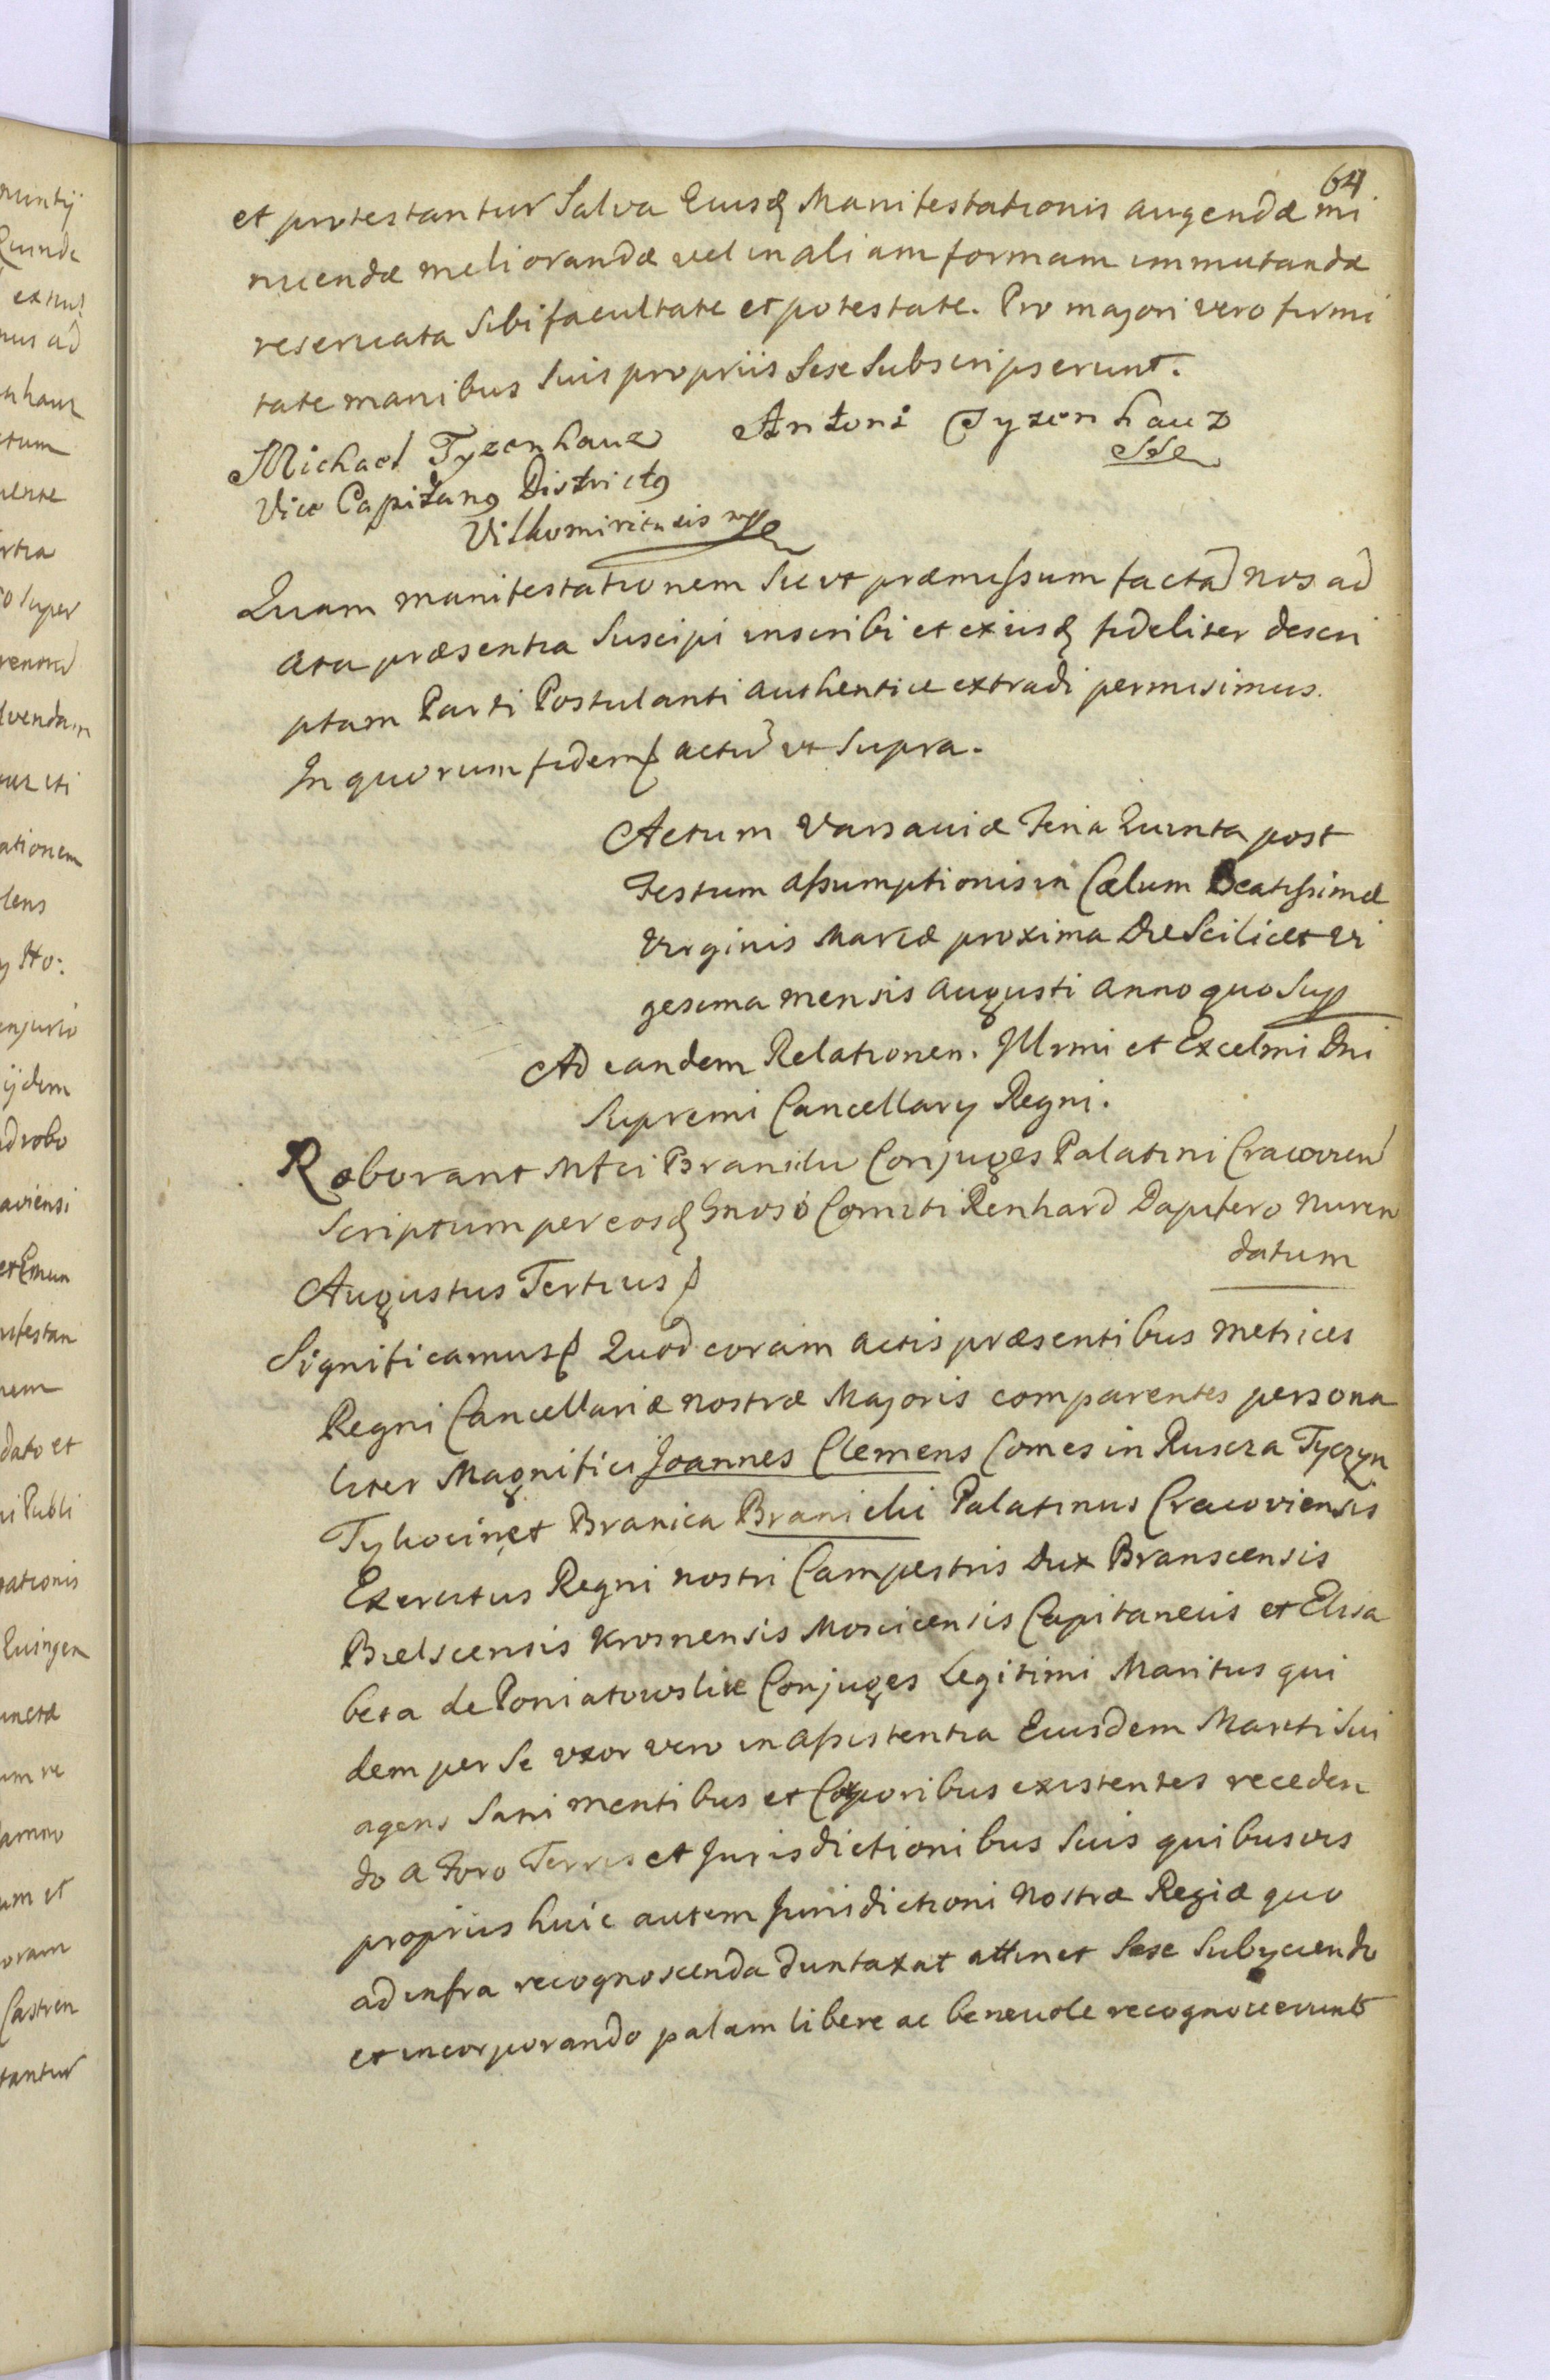 64
et protestantur Salva Eiusq Manifestationis augendæ mi
nuendæ meliorandæ vel in aliam formam immutandæ
reservata Sibi facultate et potestate. Pro majori vero firmi
tate manibus Suis propriis Sese Subscripserunt.
Michael Tyzenhauz Antoni Tyzenhauz
Vice Capitang Districtg
Vilkomiriensis mp
Quam manifestationem Sic ut præmissum facta nos ad
Acta præsentia Suscipi inscribi et ex iisq fideliter descri
ptam Parti Postulanti authentice extradi permisimus.
In quorum fidem actu ut Supra.
Actum Varsaviæ Feria Quinta post
Festum Assumptionis in Cælum Beatissimæ
Virginis Mariæ proxima Die Scilicet vi
gesima mensis Augusti Anno quo Sup
Ad eandem Relationem. Illrmi et Excelmi Dni
Supremi Cancellary Regni.
Roborant Mfci Branicku Conjuges Palatini Cracovien
Scriptum per eosq Gnoso Comiti Renhard Dapifero Nuren
datum
Augustus Tertius
Significamus Quod coram actis præsentibus Metrices
Regni Cancellariæ nostræ Majoris comparentes persona
liter Magnifici Joannes Clemens Comes in Ruscza Tyczyn
Tykocin et Branica Branicki Palatinus Cracoviensis
Exercitus Regni nostri Campestris Dux Branscensis
Bielscensis Krosnensis Moscicensis Capitaneus et Elisa
beta de Poniatowskie Conjuges Legitimi Maritus qui
dem per Se uxor vero in assistentia Eiusdem Mariti Sui
agens Sani mentibus et Corporibus existentes receden
do a Foro Terris et Jurisdictionibus Suis quibusvis
propriis huic autem Jurisdictioni Nostræ Regiæ quo
ad infra recognoscenda duntaxat attinet Sese Subyciendo
et incorporando palam libere ac benevole recognoverunt